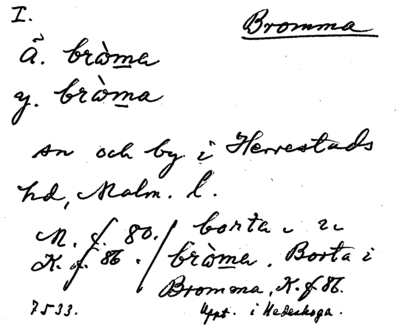 I.
Bromma
ä. bròma
y. bròma
sn och by i Herrestads
hd, Malm. l.
M. f. 80. / borta i
K. f. 86. / bròma. Borta i
Bromma, K. f 86.
7533. Uppt. i Hedeskoga.